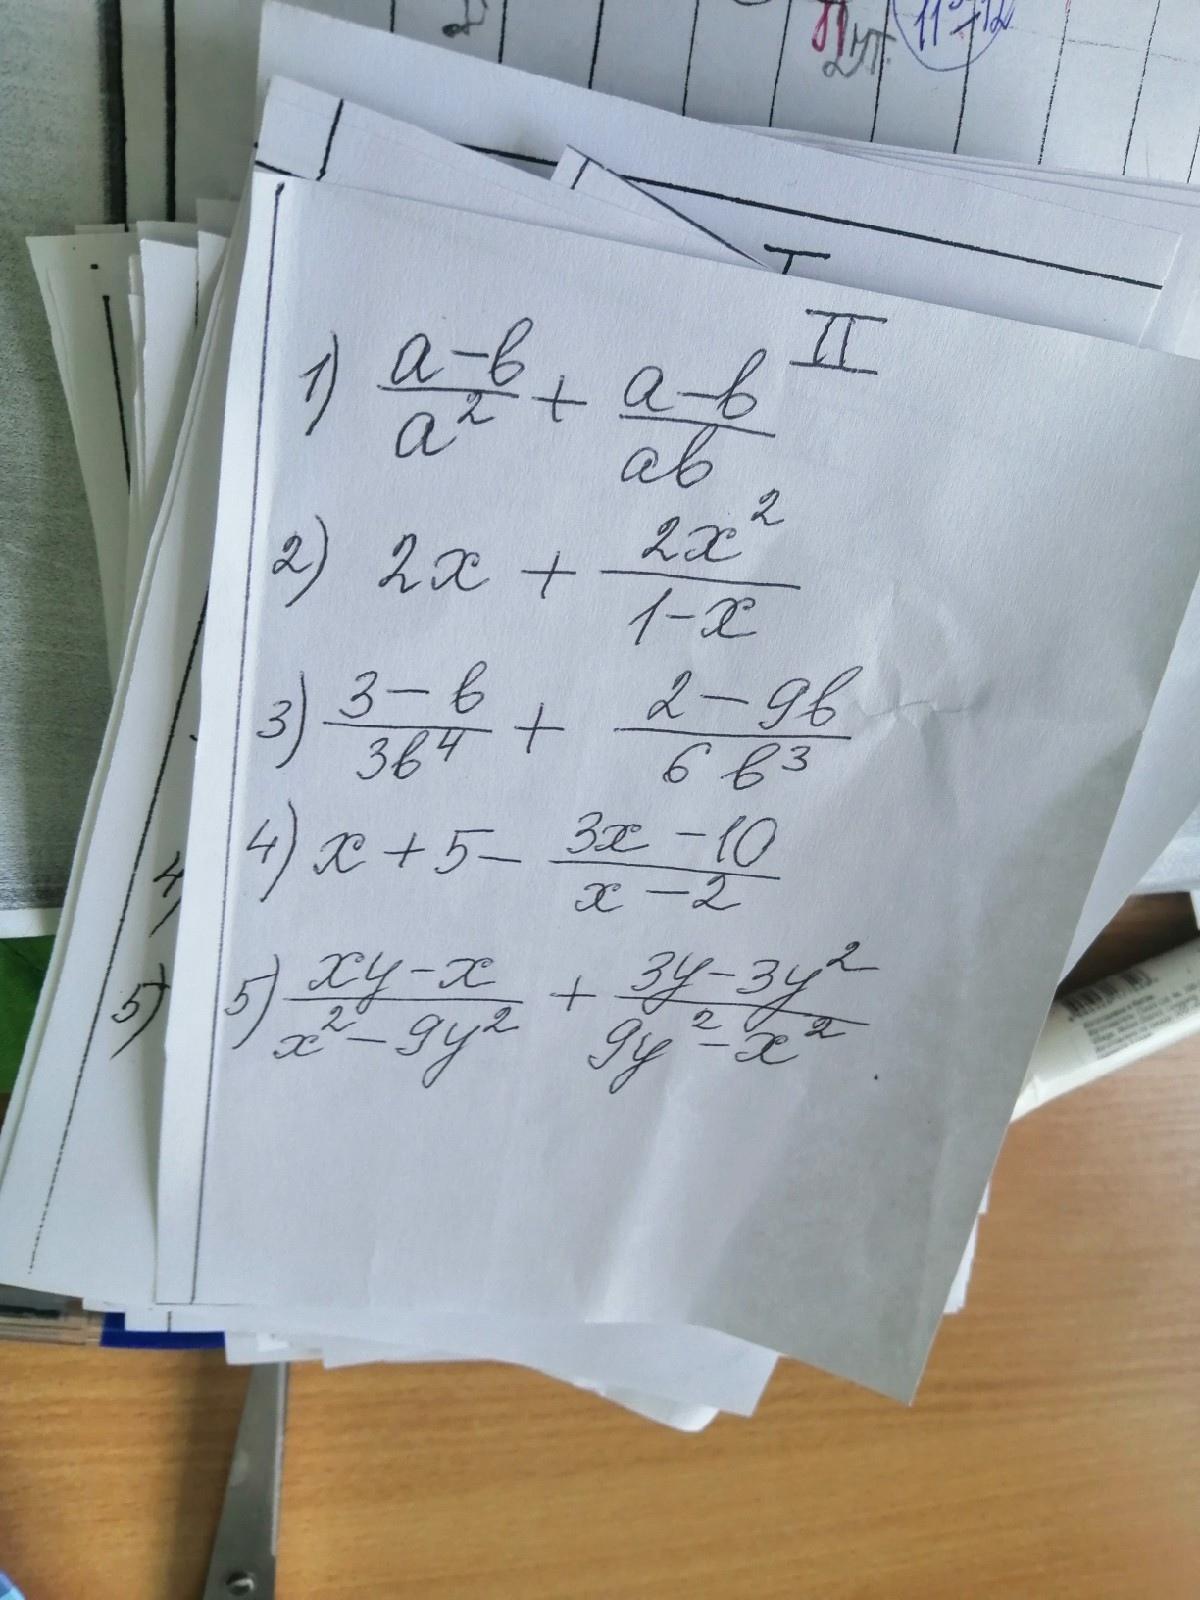 2 чт.
I
II
1) (a-b)/a² + (a-b)/ab
2) 2x + 2x²/(1-x)
3) (3-b)/3b⁴ + (2-9b)/6b³
4) x+5 - (3x-10)/(x-2)
5) (xy-x)/(x²-9y²) + (3y-3y²)/(9y²-x²)
4)
5)